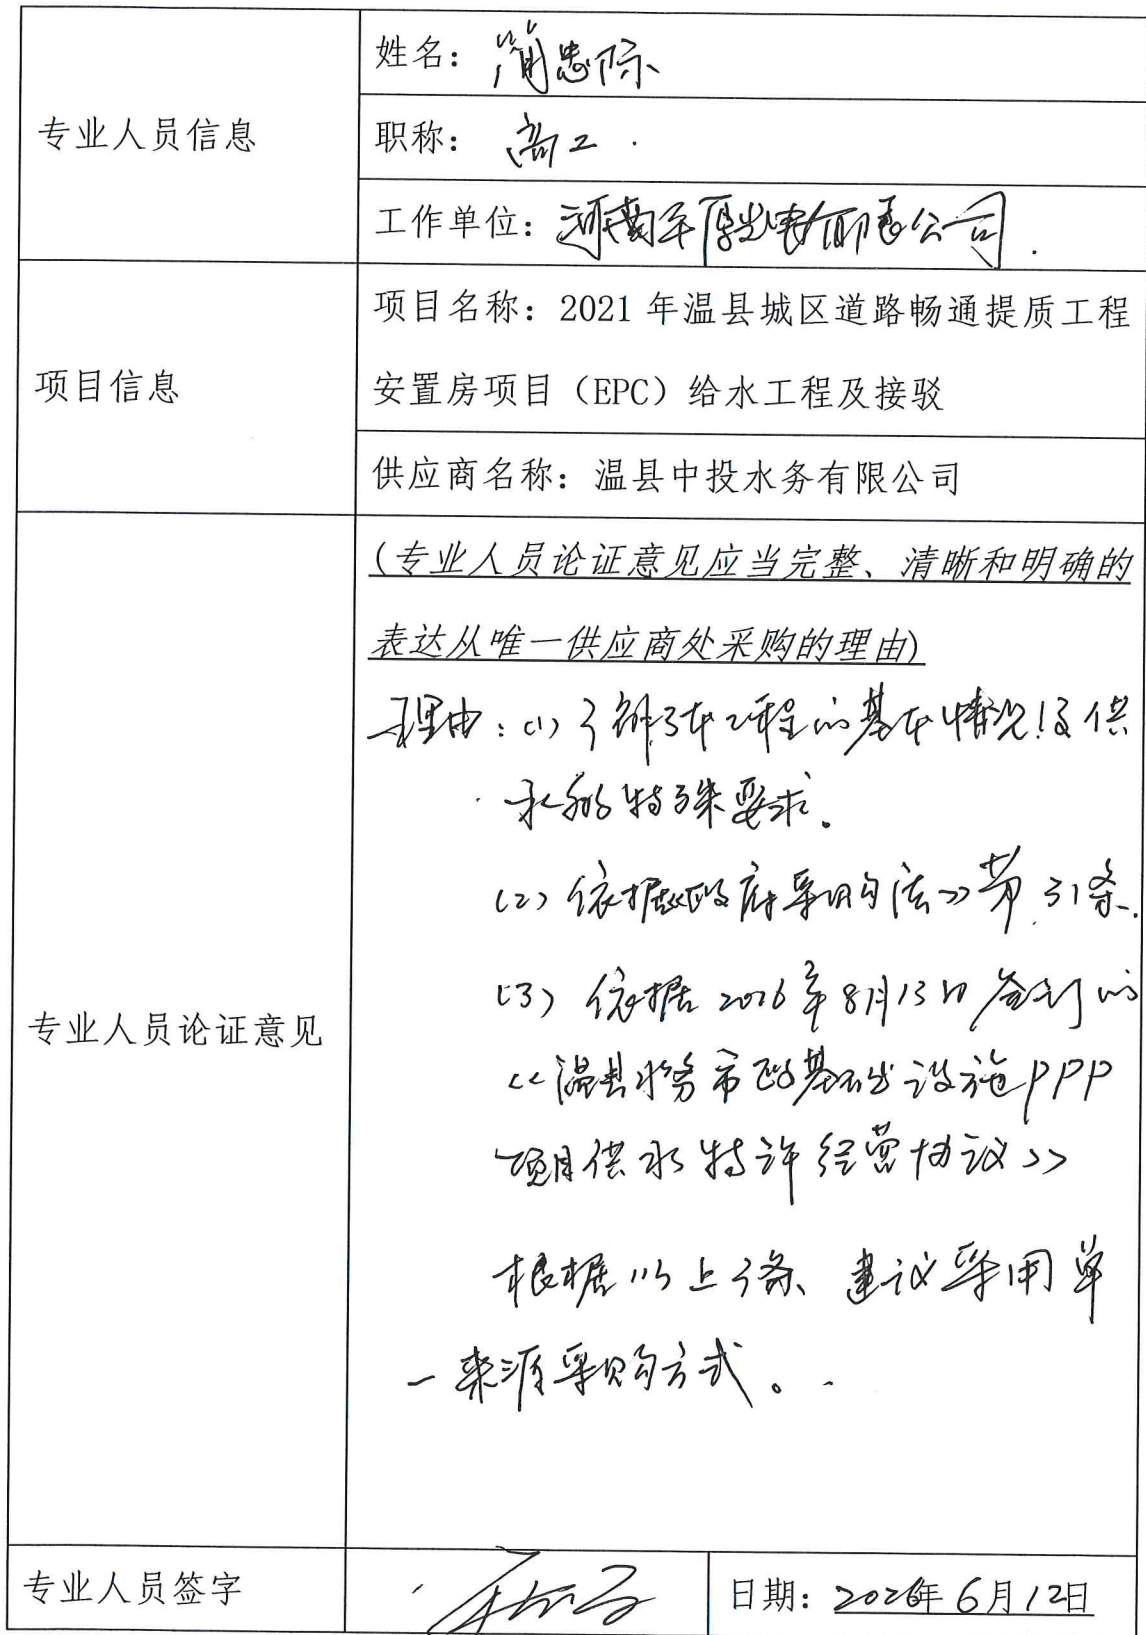 专业人员信息
姓名：简忠际
职称：高工.
工作单位：河南 有限公司.
项目信息
项目名称：2021 年温县城区道路畅通提质工程
安置房项目（EPC）给水工程及接驳
供应商名称：温县中投水务有限公司
专业人员论证意见
(专业人员论证意见应当完整、清晰和明确的
表达从唯一供应商处采购的理由)
理由：(1) 了解了本工程的基本情况及供
水的特殊要求。
(2) 依据《政府采购法》第31条.
(3) 依据2016年8月13日签订的
《温县水务市政基础设施PPP
项目供水特许经营协议》
根据以上3条、建议采用单
一来源采购方式。
专业人员签字
日期：2026年6月12日